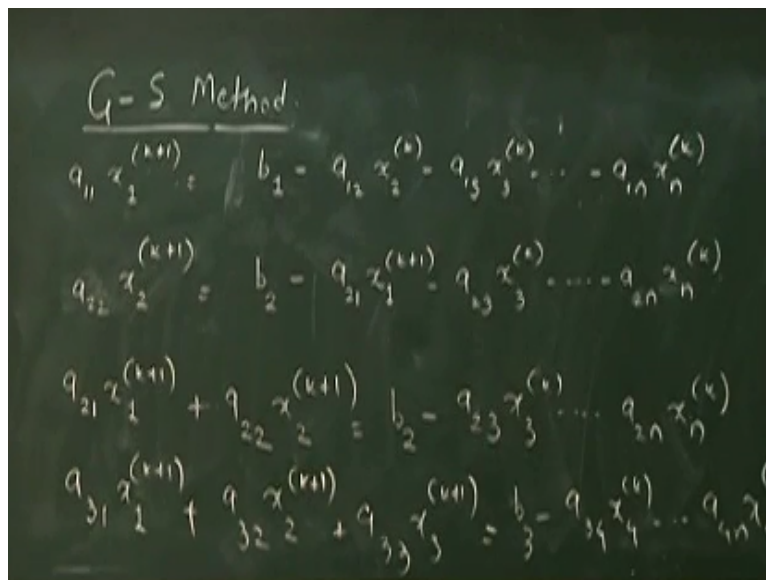 G-S Method.
a₁₁ x₁⁽ᵏ⁺¹⁾ = b₁ - a₁₂ x₂⁽ᵏ⁾ - a₁₃ x₃⁽ᵏ⁾ .... - a₁ₙ xₙ⁽ᵏ⁾
a₂₂ x₂⁽ᵏ⁺¹⁾ = b₂ - a₂₁ x₁⁽ᵏ⁺¹⁾ - a₂₃ x₃⁽ᵏ⁾ .... - a₂ₙ xₙ⁽ᵏ⁾
a₂₁ x₁⁽ᵏ⁺¹⁾ + a₂₂ x₂⁽ᵏ⁺¹⁾ = b₂ - a₂₃ x₃⁽ᵏ⁾ .... a₂ₙ xₙ⁽ᵏ⁾
a₃₁ x₁⁽ᵏ⁺¹⁾ + a₃₂ x₂⁽ᵏ⁺¹⁾ + a₃₃ x₃⁽ᵏ⁺¹⁾ = b₃ - a₃₄ x₄⁽ᵏ⁾ ... a₄ₙ x